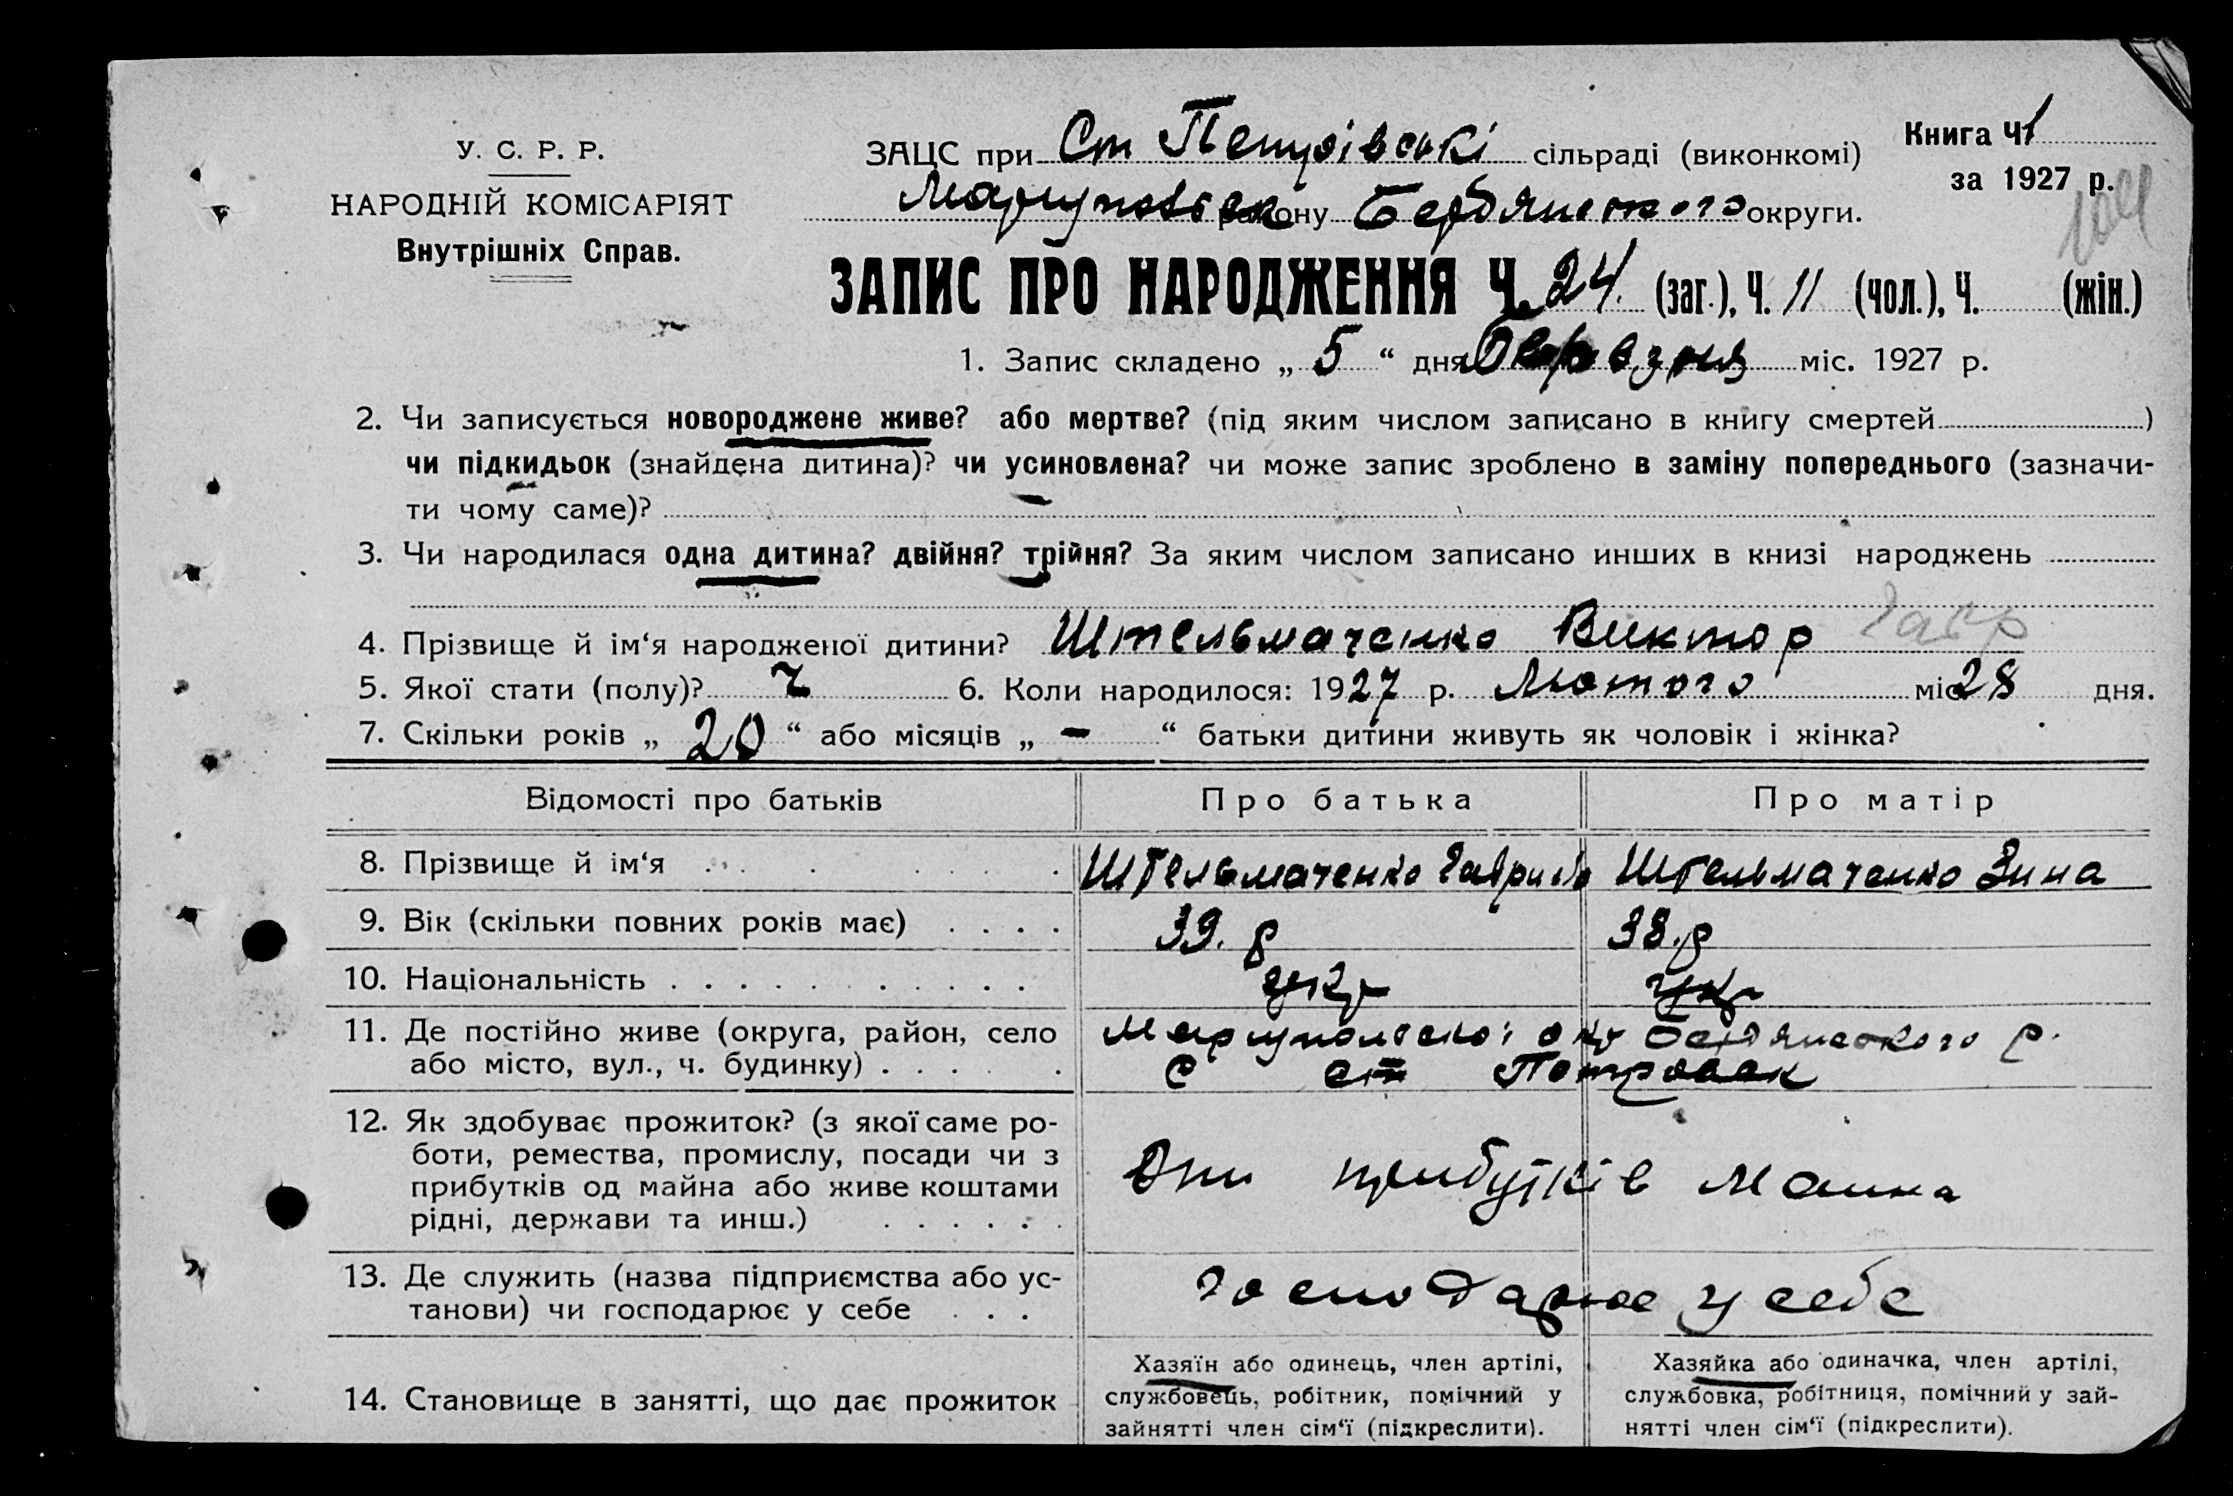 У. С. Р. Р.
НАРОДНІЙ КОМІСАРІЯТ
Внутрішніх Справ.
ЗАЦС при Ст сільраді (виконкомі)
району Бердянського округи.
Книга Ч 1
за 1927 р.
ЗАПИС ПРО НАРОДЖЕННЯ Ч. 24. (заг.), Ч. 11 (чол.), Ч. (жін.)
1. Запис складено „ 5 “ дня Березня міс. 1927 р.
2. Чи записується новороджене живе? або мертве? (під яким числом записано в книгу смертей )
чи підкидьок (знайдена дитина)? чи усиновлена? чи може запис зроблено в заміну попереднього (зазначи-
ти чому саме)?
3. Чи народилася одна дитина? двійня? трійня? За яким числом записано инших в книзі народжень
4. Прізвище й ім‘я народженої дитини? Штельмаченко Виктор Гавр
5. Якої стати (полу)? ч 6. Коли народилося: 1927 р. Лютого міс 28 дня.
7. Скільки років „ 20 “ або місяців „ – “ батьки дитини живуть як чоловік і жінка?
Відомості про батьків Про батька Про матір
8. Прізвище й ім‘я Штельмаченко Гаврило Штельмаченко Зина
9. Вік (скільки повних років має) 39. р 38. р
10. Національність укр укр
11. Де постійно живе (округа, район, село
або місто, вул., ч. будинку)
Бердянского р.
с ст
12. Як здобуває прожиток? (з якої саме ро-
боти, ремества, промислу, посади чи з
прибутків од майна або живе коштами
рідні, держави та инш.)
прибутків маина
13. Де служить (назва підприємства або ус-
танови) чи господарює у себе
господарює у себе
14. Становище в занятті, що дає прожиток
Хазяїн або одинець, член артілі,
службовець, робітник, помічний у
зайнятті член сім‘ї (підкреслити).
Хазяйка або одиначка, член артілі,
службовка, робітниця, помічний у зай-
нятті член сім‘ї (підкреслити).